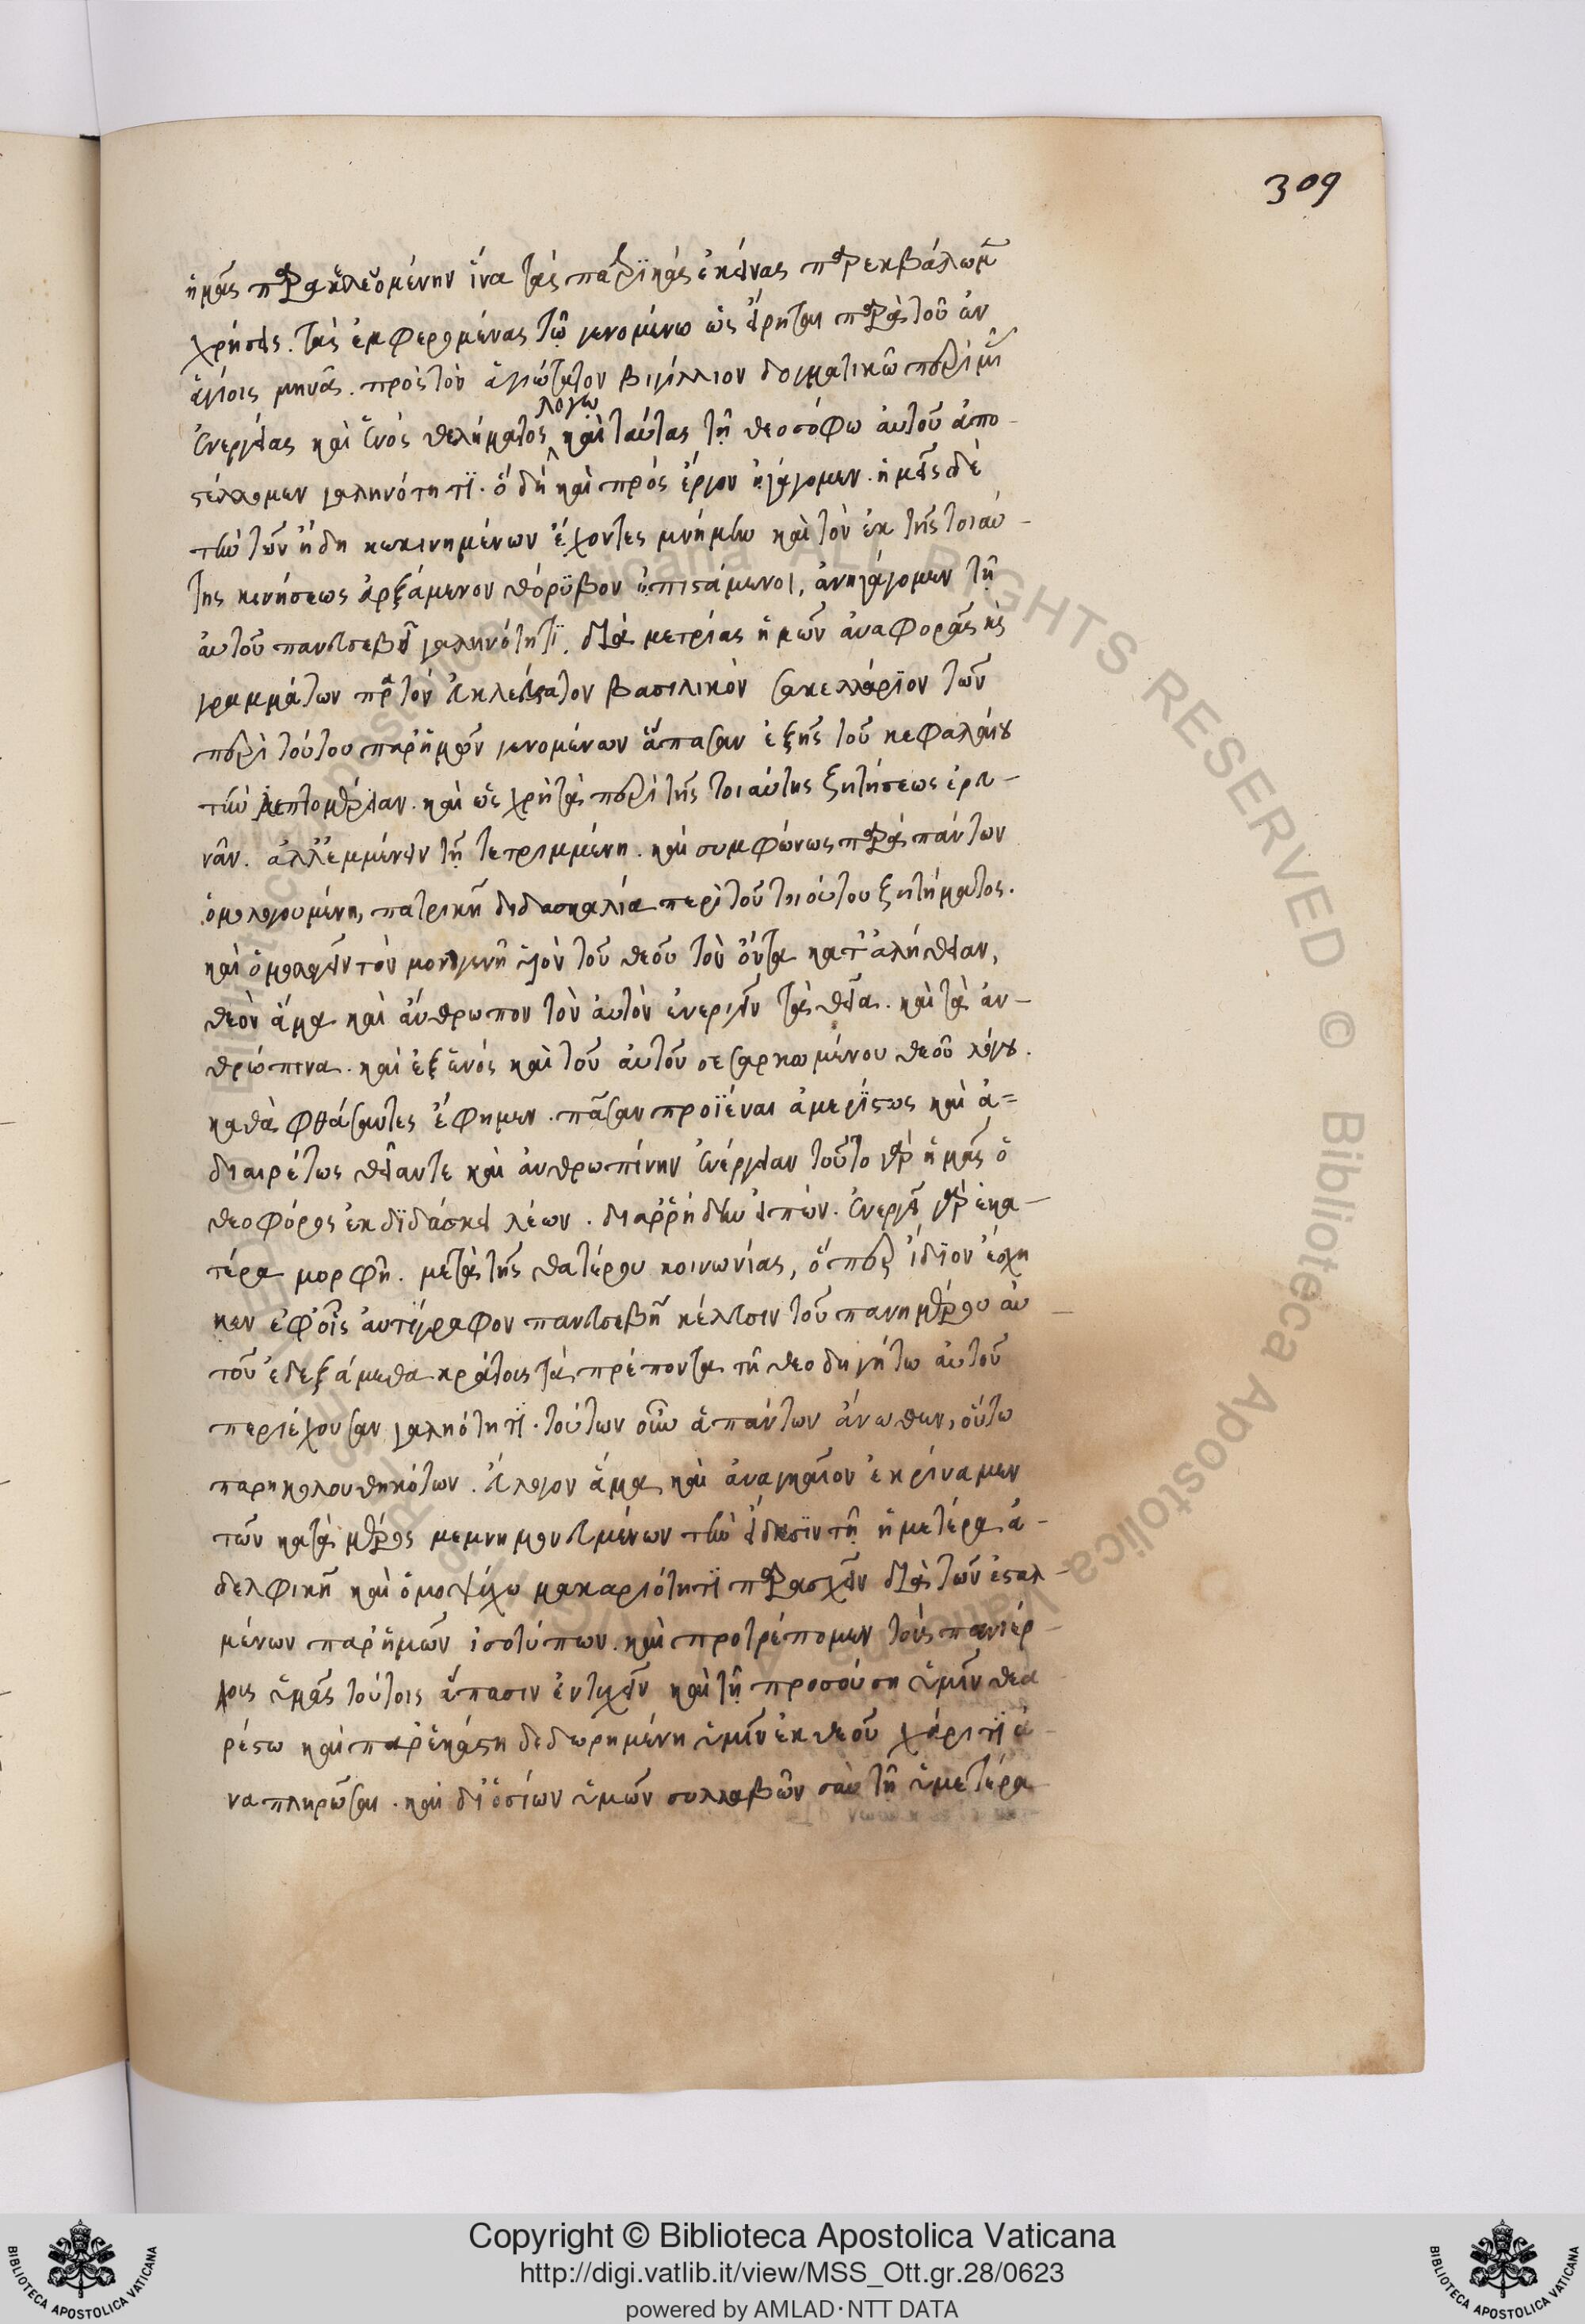 309
ἡμᾶς παρακελευομένην ἵνα τὰς πατρϊκὰς ἐκείνας παρεκβάλωμεν
χρήσεις. τὰς ἐμφερομένας τῷ γενομένω ὡς εἴρηται παρὰ τοῦ ἐν
ἁγίοις μηνᾶ. πρὸς τὸν ἁγιώτατον βιγίλλιον δογματικῶ περὶ μιᾶς
ἐνεργείας καὶ ἑνὸς θελήματος λόγω καὶ ταύτας τῇ θεοσόφω αὐτοῦ ἀπο-
στέλλομεν γαληνότητϊ. ὃ δὴ καὶ πρὸς ἔργον ἠγάγομεν. ἡμεῖς δὲ
τὴν τῶν ἤδη κεκινημένων ἔχοντες μνήμην καὶ τὸν ἐκ τῆς τοιαύ-
της κινήσεως ἀρξάμενον θόρϋβον ἐπιστάμενοι, ἀνηγάγομεν τῇ
αὐτοῦ πανευσεβεῖ γαληνότητϊ. διὰ μετρίας ἡμῶν ἀναφορᾶς πρὸς
γραμμάτων πρὸς τὸν εὐκλεέστατον βασιλικὸν σακελλάρϊον τῶν
περὶ τούτου παρ' ἡμῶν γενομένων ἅπασαν ἑξῆς τοῦ κεφαλαίου
τὴν λεπτομέρειαν. καὶ ὡς χρὴ τὰ περὶ τῆς τοιαύτης ζητήσεως ἐρευ-
νᾶν. ἀλλ' ἐμμένειν τῇ τετριμμένη. καὶ συμφώνως παρὰ πάντων
ὁμολογουμένη, πατρικῇ διδασκαλία περὶ τοῦ τοιούτου ζητήματος.
καὶ ὁμολογεῖν τὸν μονογενῆ υἱὸν τοῦ θεοῦ τὸν ὄντα κατ' ἀλήθειαν,
θεὸν ἅμα καὶ ἄνθρωπον τὸν αὐτὸν ἐνεργεῖν τὰ θεῖα. καὶ τὰ ἀν-
θρώπινα. καὶ ἐξ ἑνὸς καὶ τοῦ αὐτοῦ σεσαρκωμένου θεοῦ λόγου.
καθὰ φθάσαντες ἔφημεν. πᾶσαν προϊέναι ἀμερίστως καὶ ἀ=
διαιρέτως θείαν τε καὶ ἀνθρωπίνην ἐνέργειαν τοῦτο γὰρ ἡμᾶς ὁ
θεοφόρος ἐκδϊδάσκει λέων. διαρρήδην εἰπών. ἐνεργεῖ γὰρ ἑκα-
τέρα μορφὴ. μετὰ τῆς θατέρου κοινωνίας, ὅπερ ἴδϊον ἔσχη
κεν ἐφ' οἷς ἀντίγραφον πανευσεβῆ κέλευσιν τοῦ πανημέρου αὐ-
τοῦ ἐδεξάμεθα κράτους τὰ πρέποντα τῇ θεοδηγήτω αὐτοῦ
περιέχουσαν γαληνότητϊ. τούτων οὖν ἁπάντων ἄνωθεν, οὕτω
παρηκολουθηκότων. εὔλογον ἅμα καὶ ἀναγκαῖον ἐκρίναμεν
τῶν κατὰ μέρος μεμνημονευμένων τὴν εἴδησϊν τῇ ἡμετέρα ἀ-
δελφικῇ καὶ ὁμοψύχω μακαριότητϊ παρασχεῖν διὰ τῶν ἐσταλ-
μένων παρ' ἡμῶν ἰσοτύπων. καὶ προτρέπομεν τοὺς πανιέρ-
ους ὑμᾶς τούτοις ἅπασιν ἐντυχεῖν καὶ τῇ προσούση ὑμῖν θεα
ρέστω καὶ παρ' ἑκάστη δεδωρημένη ὑμῖν ἐκ θεοῦ χάριτϊ ἀ-
ναπληρῶσαι. καὶ δι' ὁσίων ὑμῶν συλλαβῶν σὺν τῇ ὑμετέρα